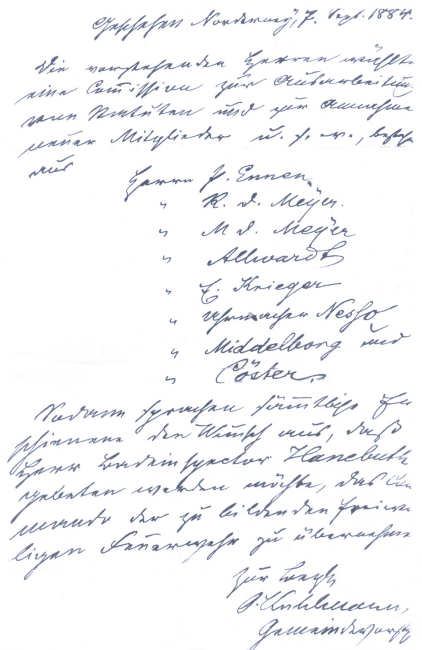 Geschehen Norderney, 7. Sept. 1884.
Die vorstehenden Herren wählte
eine Comission zur Ausarbeitung
von Statuten und zur Annahme
neuer Mitglieder u. s. w., besteh
aus
Herrn J. Ennen.
" R. d. Meyer.
" M d. Meyer
" Allwardt
" E. Krieger
" Uhrmacher Nesso
" Middelborg und
" Cöster.
Sodann sprachen sämtliche Er
schienene den Wunsch aus, daß
Herr Badeinspector Hanebuth
gebeten werden möchte, das Com
mando der zu bildenden freiwi
ligen Feuerwehr zu übernehme
Zur
Kuhlmann,
Gemeindevorst